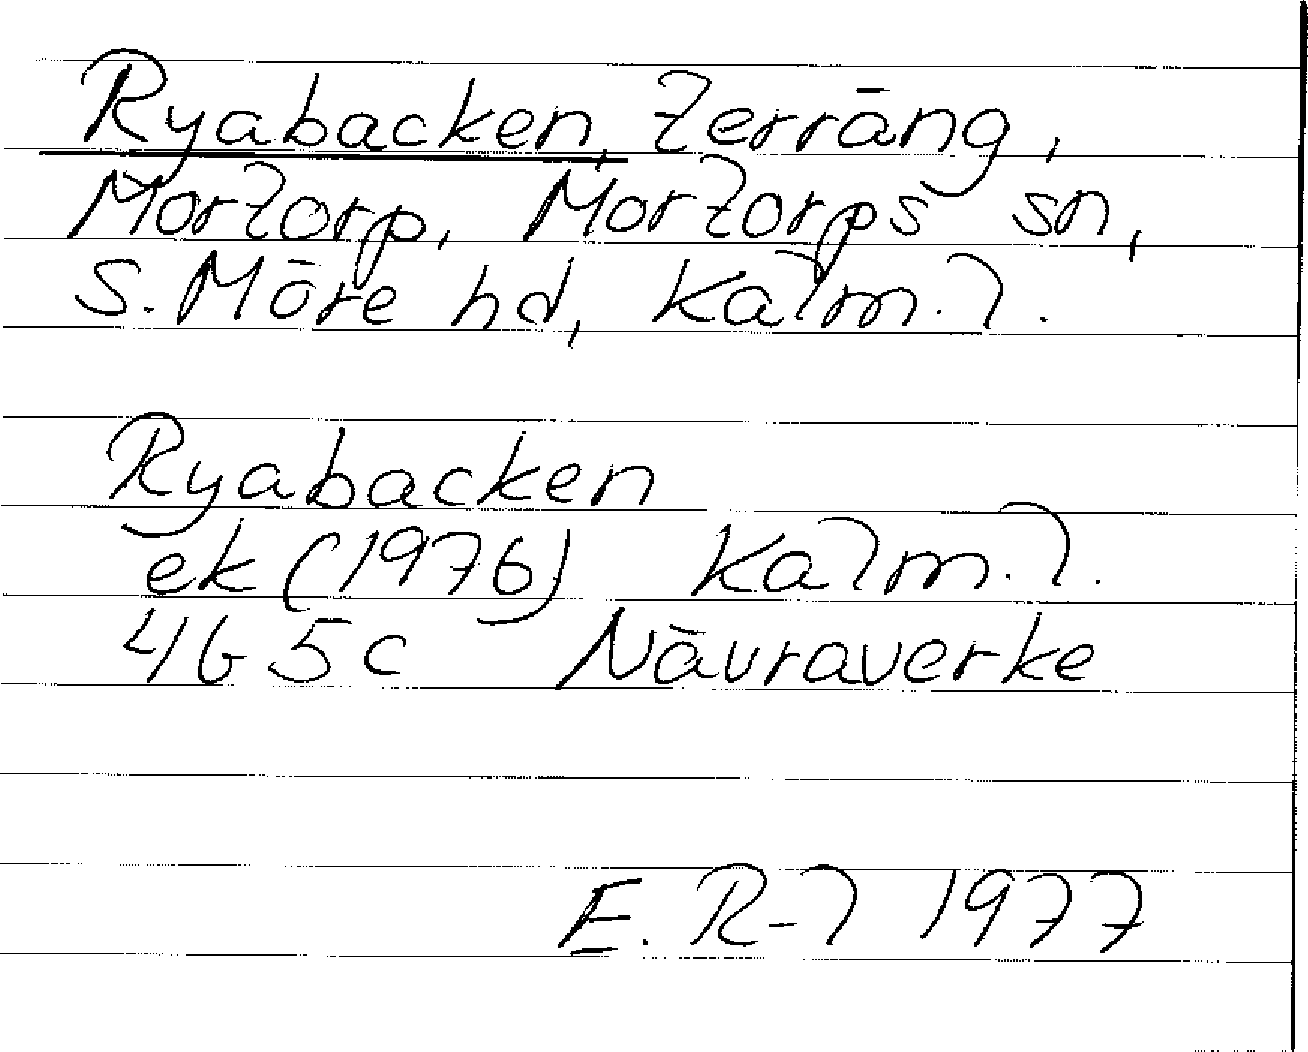 Ryabacken, Terräng,
Mortorp, Mortorps sn,
S. Möre hd, Kalm. l.
Ryabacken
ek (1976) Kalm. l.
4G 5c Nävraverke
E. R-l 1977